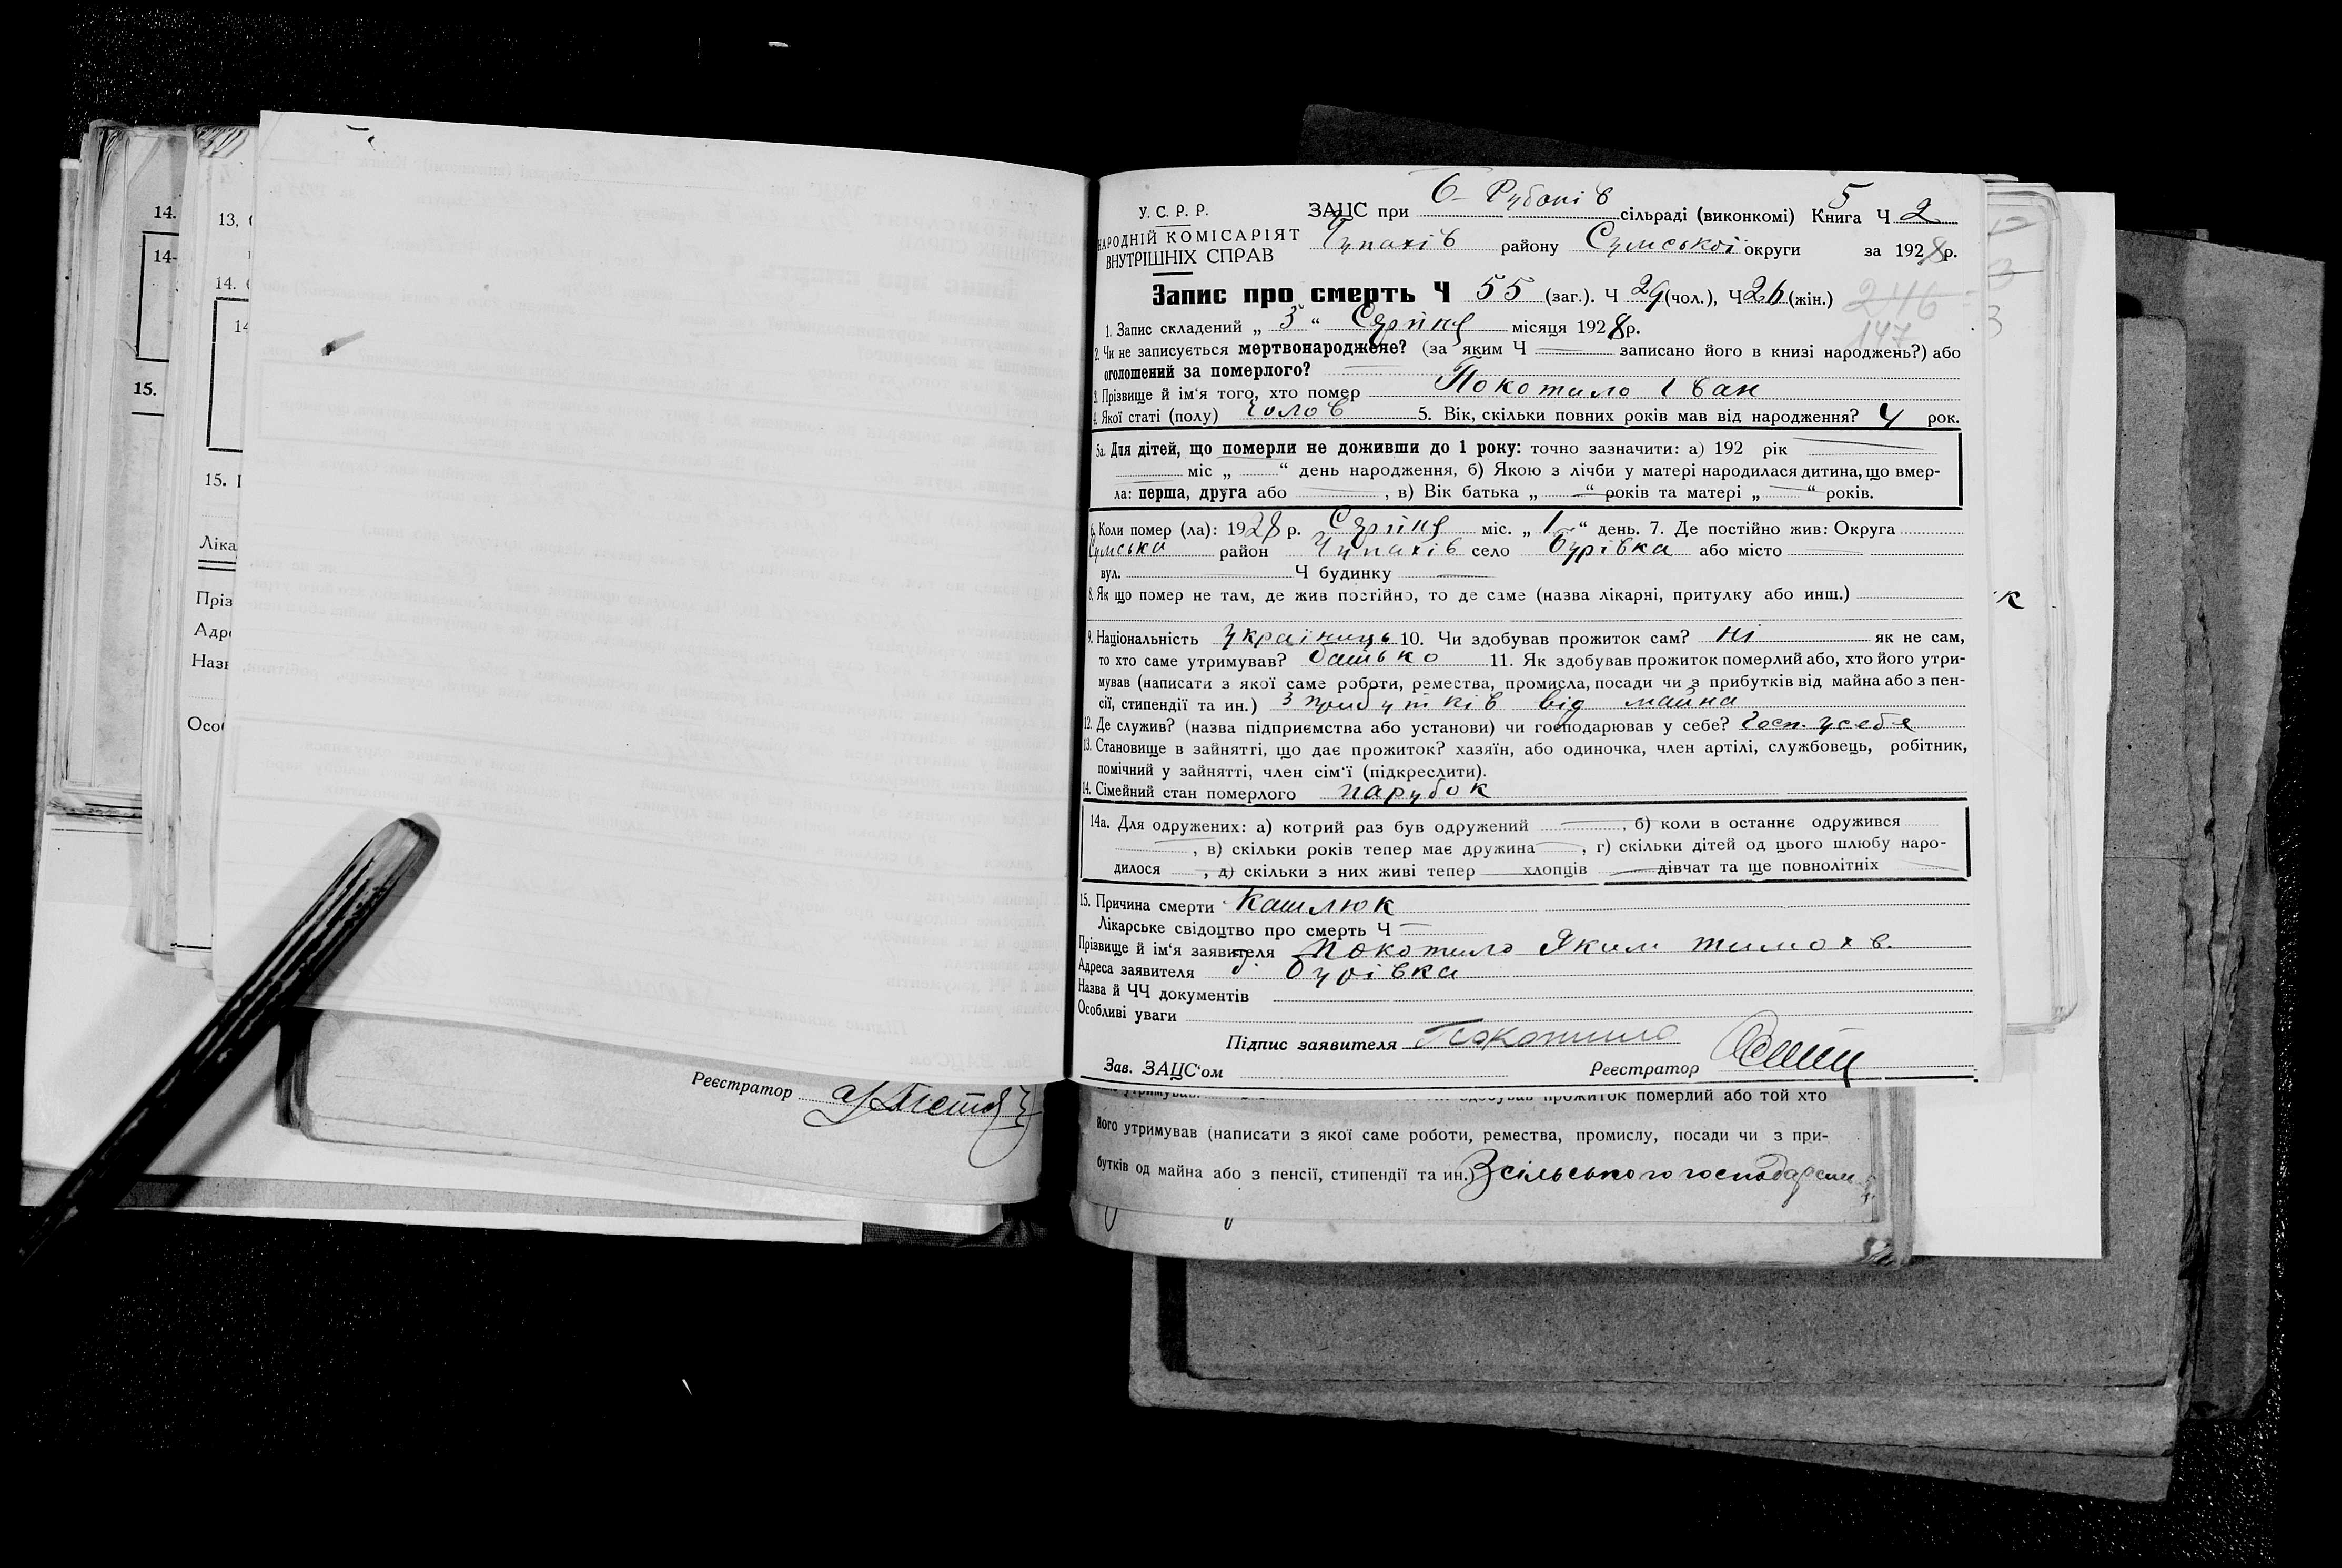 У. С. Р. Р.
НАРОДНІЙ КОМІСАРІЯТ
ВНУТРІШНІХ СПРАВ
5
ЗАЦС при Рубанів сільраді (виконкомі) Книга Ч 2
Чупахів району Сумської округи за 1928 р.
Запис про смерть Ч 55 (заг.). Ч 29 (чол.), Ч 26 (жін.)
246
147
1. Запис складений „ 3 “ Серпня місяця 1928 р.
2. Чи не записується мертвонароджене? (за яким Ч записано його в книзі народжень?) або
оголошений за померлого?
3. Прізвище й ім'я того, хто помер Покотило Іван
4. Якої статі (полу) чолов 5. Вік, скільки повних років мав від народження? 4 рок.
5а. Для дітей, що померли не доживши до 1 року: точно зазначити: а) 192 рік
міс „ “ день народження, б) Якою з лічби у матері народилася дитина, що вмер-
ла: перша, друга або , в) Вік батька „ “ років та матері „ “ років.
6. Коли помер (ла): 1928 р. Серпня міс. „ 1 “ день. 7. Де постійно жив: Округа
Сумська район Чупахів село Бурівка або місто
вул. Ч будинку
8. Як що помер не там, де жив постійно, то де саме (назва лікарні, притулку або инш.)
9. Національність Українець 10. Чи здобував прожиток сам? ні як не сам,
то хто саме утримував? батько 11. Як здобував прожиток померлий або, хто його утри-
мував (написати з якої саме роботи, ремества, промисла, посади чи з прибутків від майна або з пен-
сії, стипендії та ин.) з прибутків від майна
12. Де служив? (назва підприємства або установи) чи господарював у себе? Госп. у себе
13. Становище в зайнятті, що дає прожиток? хазяїн, або одиночка, член артілі, службовець, робітник,
помічний у зайнятті, член сім'ї (підкреслити).
14. Сімейний стан померлого парубок
14а. Для одружених: а) котрий раз був одружений , б) коли в останнє одружився
, в) скільки років тепер має дружина , г) скільки дітей од цього шлюбу наро-
дилося , д) скільки з них живі тепер хлопців дівчат та ще повнолітніх
15. Причина смерти Кашлюк
Лікарське свідоцтво про смерть Ч
Прізвище й ім'я заявителя Покотило Яким Тимохв.
Адреса заявителя Бурівка
Назва й ЧЧ документів
Особливі уваги
Підпис заявителя Покотило
Зав. ЗАЦС'ом Реєстратор
Реєстратор
здобував прожиток померлий або той хто
його утримував (написати з якої саме роботи, ремества, промислу, посади чи з при-
бутків од майна або з пенсії, стипендії та ин.) З сільського господарсти
14.
14-
15.
13,
14.
14
15.
Ліка
Пріз
Адр
Назв
Особ